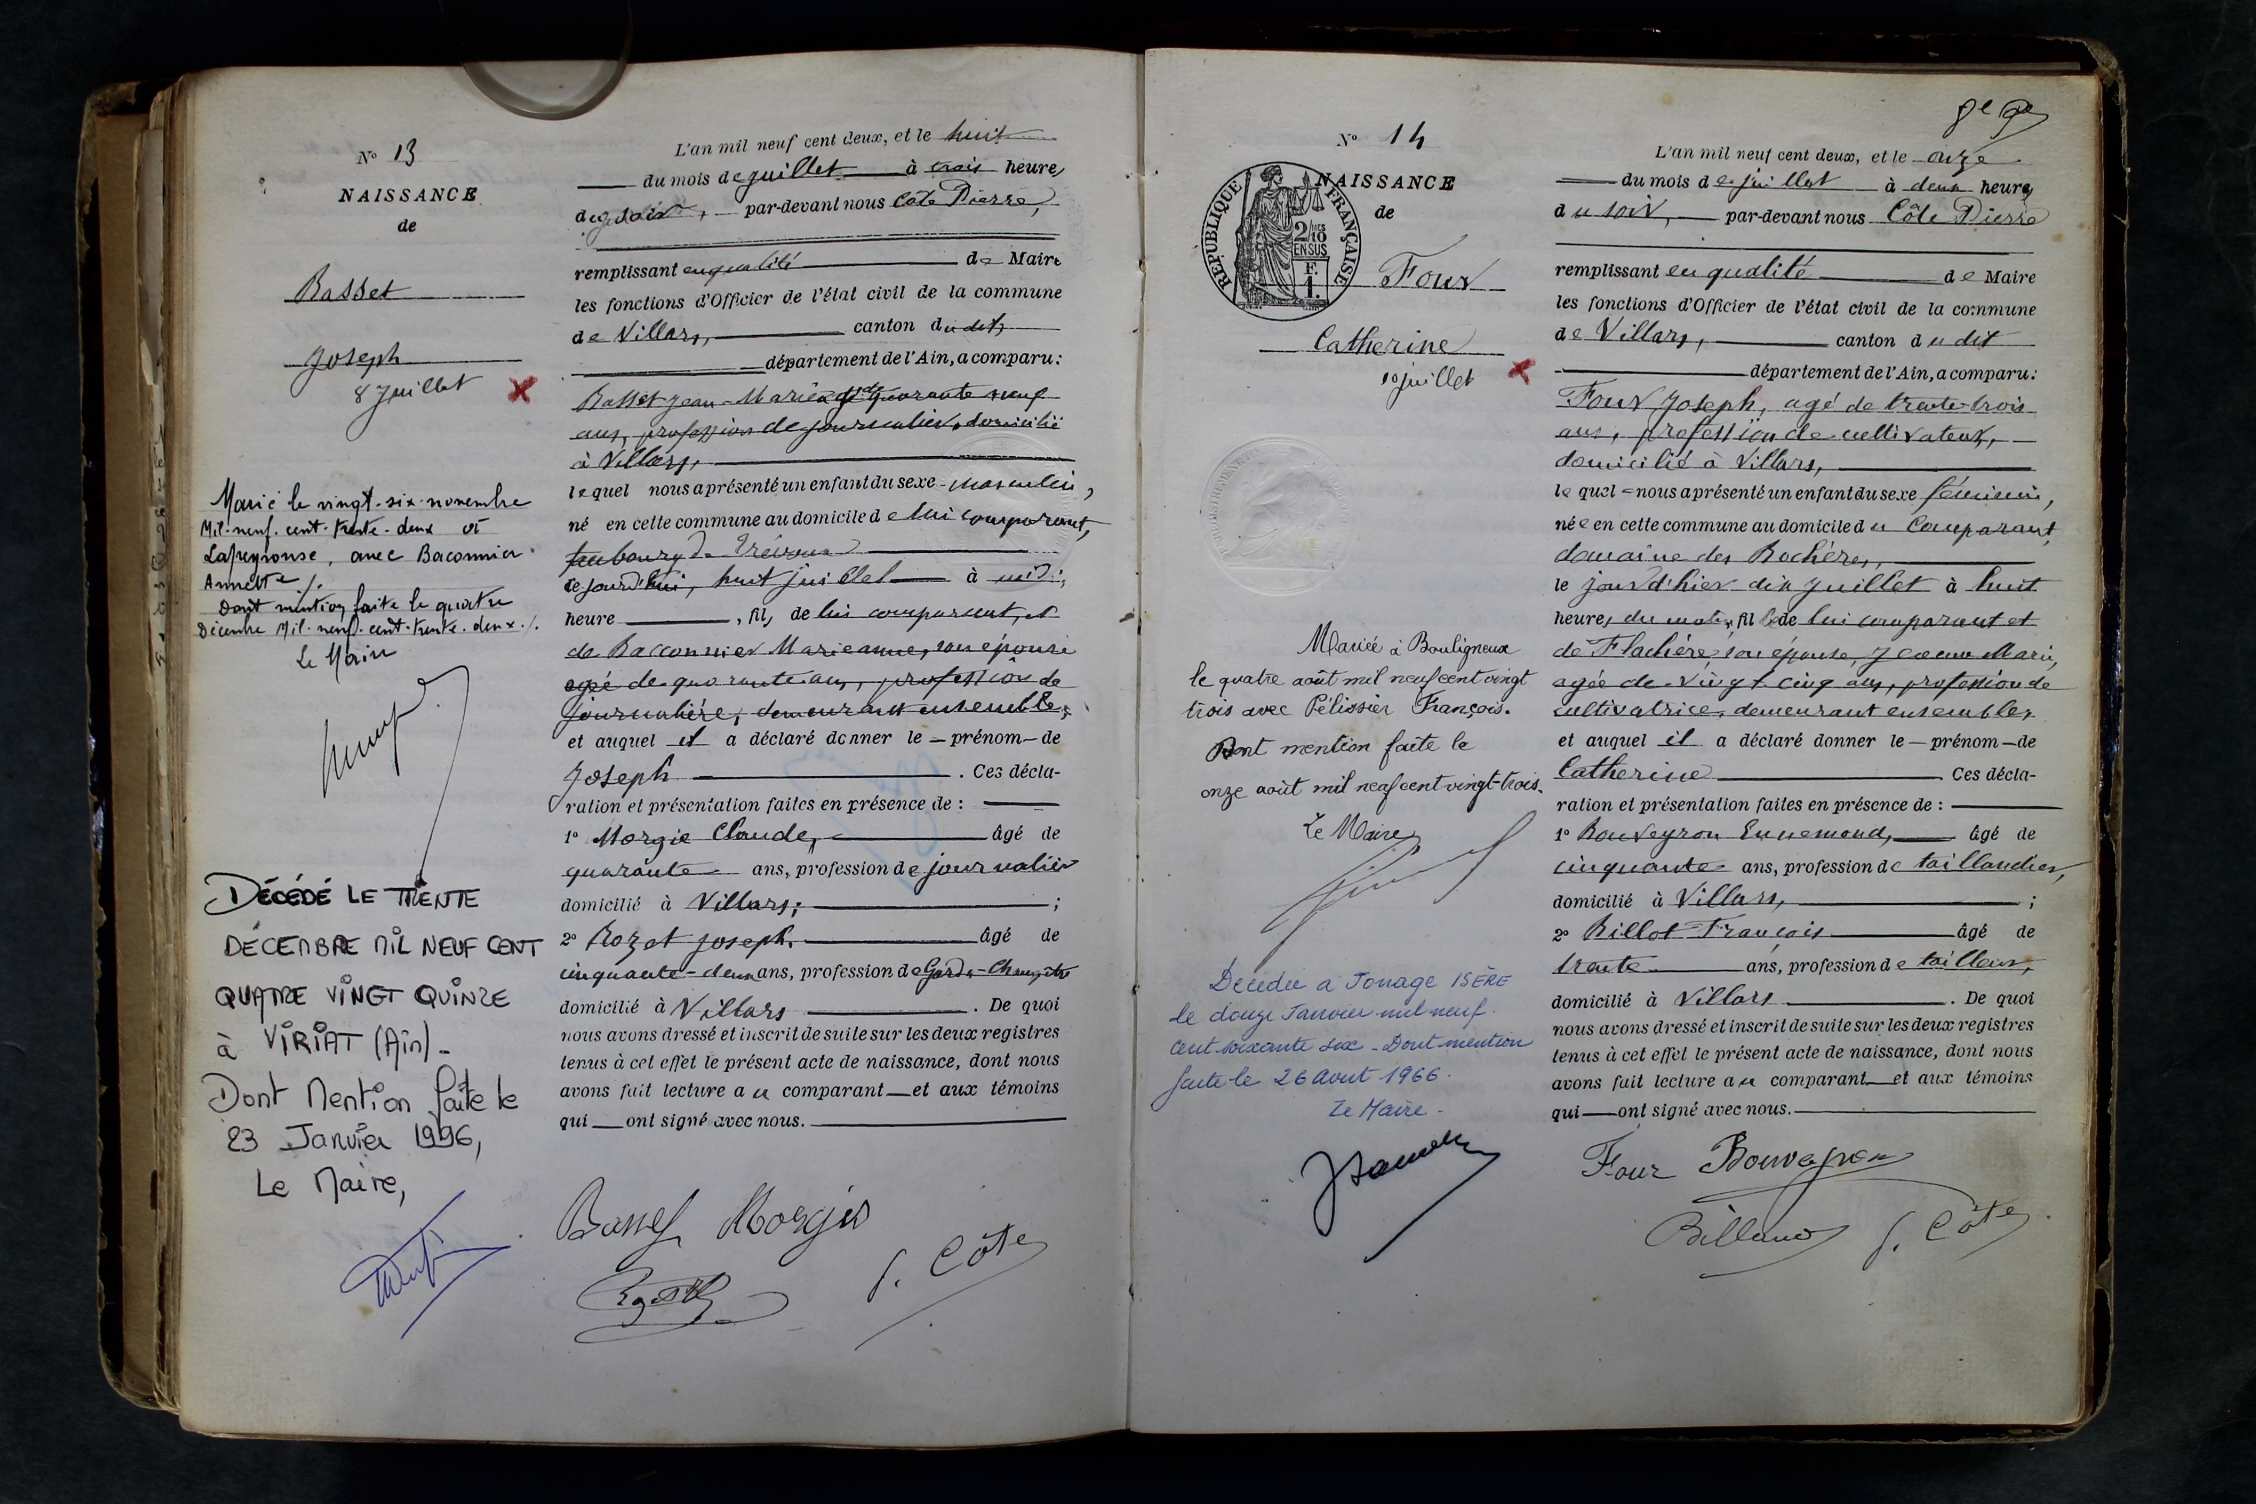 N° 13
NAISSANCE
de
Basset
Joseph
8 Juillet
Marié le vingt-six novembre
Mil-neuf-cent-trente-deux à
Lapeyrouse, avec Baconnier
Annette ./.
Dont mention faite le quatre
Décembre Mil-neuf-cent-trente-deux ./.
Le Maire
DÉCÉDÉ LE TRENTE
DÉCEMBRE MIL NEUF CENT
QUATRE VINGT QUINZE
à VIRIAT (Ain)-
Dont Mention faite le
23 Janvier 1996,
Le Maire,
L'an mil neuf cent deux, et le huit
du mois de juillet à trois heures
du soir, par-devant nous Côte Pierre,
remplissant en qualité de Maire
les fonctions d'Officier de l'état civil de la commune
de Villars, canton dudit,
département de l'Ain, a comparu:
Basset Jean-Marie agé de quarante neuf
ans, profession de journalier, domicilié
à Villars,
lequel nous a présenté un enfant du sexe masculin,
né en cette commune au domicile de lui comparant,
faubourg de Trévoux
ce jourd'hui, huit juillet à midi,
heure , fils de lui comparant, et
de Bacconnier Marieanne, son épouse
agé de quarante ans, profession de
journalière, demeurant ensemble,
et auquel il a déclaré donner le — prénom — de
Joseph . Ces décla-
ration et présentation faites en présence de :
1° Morgie Claude, âgé de
quarante ans, profession de journalier
domicilié à Villars, ;
2° Rozet Joseph. âgé de
cinquante-deux ans, profession de Garde-Champêtre
domicilié à Villars . De quoi
nous avons dressé et inscrit de suite sur les deux registres
tenus à cet effet le présent acte de naissance, dont nous
avons fait lecture au comparant — et aux témoins
qui — ont signé avec nous.
Basset Morgie
J. Côte
N° 14
NAISSANCE
de
RÉPUBLIQUE FRANÇAISE
2/10 EN SUS
F. 1.
Four
Catherine
10 juillet
Mariée à Bouligneux
le quatre août mil neuf cent vingt
trois avec Pélissier François.
Dont mention faite le
onze août mil neuf cent vingt-trois.
Le Maire
Décédée à Jonage ISÈRE
le douze Janvier mil neuf
cent soixante six - Dont mention
faite le 26 Aout 1966.
Le Maire -
L'an mil neuf cent deux, et le onze
du mois de juillet à deux heures
du soir, par-devant nous Côte Pierre
remplissant en qualité de Maire
les fonctions d'Officier de l'état civil de la commune
de Villars, canton dudit
département de l'Ain, a comparu:
Four Joseph, agé de trente-trois
ans, profession de cultivateur,
domicilié à Villars,
lequel nous a présenté un enfant du sexe féminin,
née en cette commune au domicile du comparant,
domaine des Rochères,
le jour d'hier dix juillet à huit
heures du matin, fille de lui comparant et
de Flachère, son épouse, Jeanne Marie,
agée de vingt cinq ans, profession de
cultivatrice, demeurant ensemble,
et auquel il a déclaré donner le — prénom — de
Catherine Ces décla-
ration et présentation faites en présence de :
1° Bouveyron Ennemond, âgé de
cinquante ans, profession de taillandier,
domicilié à Villars, ;
2° Billot François âgé de
trente ans, profession de tailleur,
domicilié à Villars . De quoi
nous avons dressé et inscrit de suite sur les deux registres
tenus à cet effet le présent acte de naissance, dont nous
avons fait lecture au comparant — et aux témoins
qui — ont signé avec nous.
Four Bouveyron
J. Côte